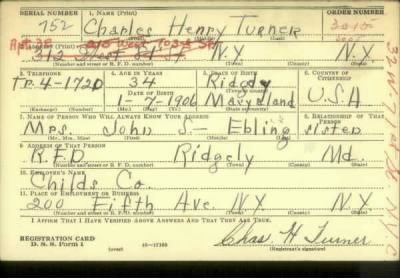 SERIAL NUMBER 1. NAME (Print) ORDER NUMBER
752 Charles Henry Turner 3015
(First) (Middle) (Last)
Apt 3F 210 West 103rd St
312 54 St N.Y. N.Y.
(Number and street or R. F. D. number) (Town) (County) (State)
3. TELEPHONE 4. AGE IN YEARS 5. PLACE OF BIRTH 6. COUNTRY OF CITIZENSHIP
Tr. 4-1720 34 Ridgely
DATE OF BIRTH (Town or county)
1-7-1906 Maryland U.S.A
(Exchange) (Number) (Mo.) (Day) (Yr.) (State or country)
7. NAME OF PERSON WHO WILL ALWAYS KNOW YOUR ADDRESS 8. RELATIONSHIP OF THAT PERSON
Mrs. John S.- Ebling sister
(Mr., Mrs., Miss) (First) (Middle) (Last)
9. ADDRESS OF THAT PERSON
R.F.D Ridgely Md.
(Number and street or R. F. D. number) (Town) (County) (State)
10. EMPLOYER'S NAME
Childs Co
11. PLACE OF EMPLOYMENT OR BUSINESS
200 Fifth Ave. N.Y N.Y
(Number and street or R. F. D. number) (Town) (County) (State)
I AFFIRM THAT I HAVE VERIFIED ABOVE ANSWERS AND THAT THEY ARE TRUE.
REGISTRATION CARD
D. S. S. Form 1 (over) 16-17105
Chas H Turner
(Registrant's signature)